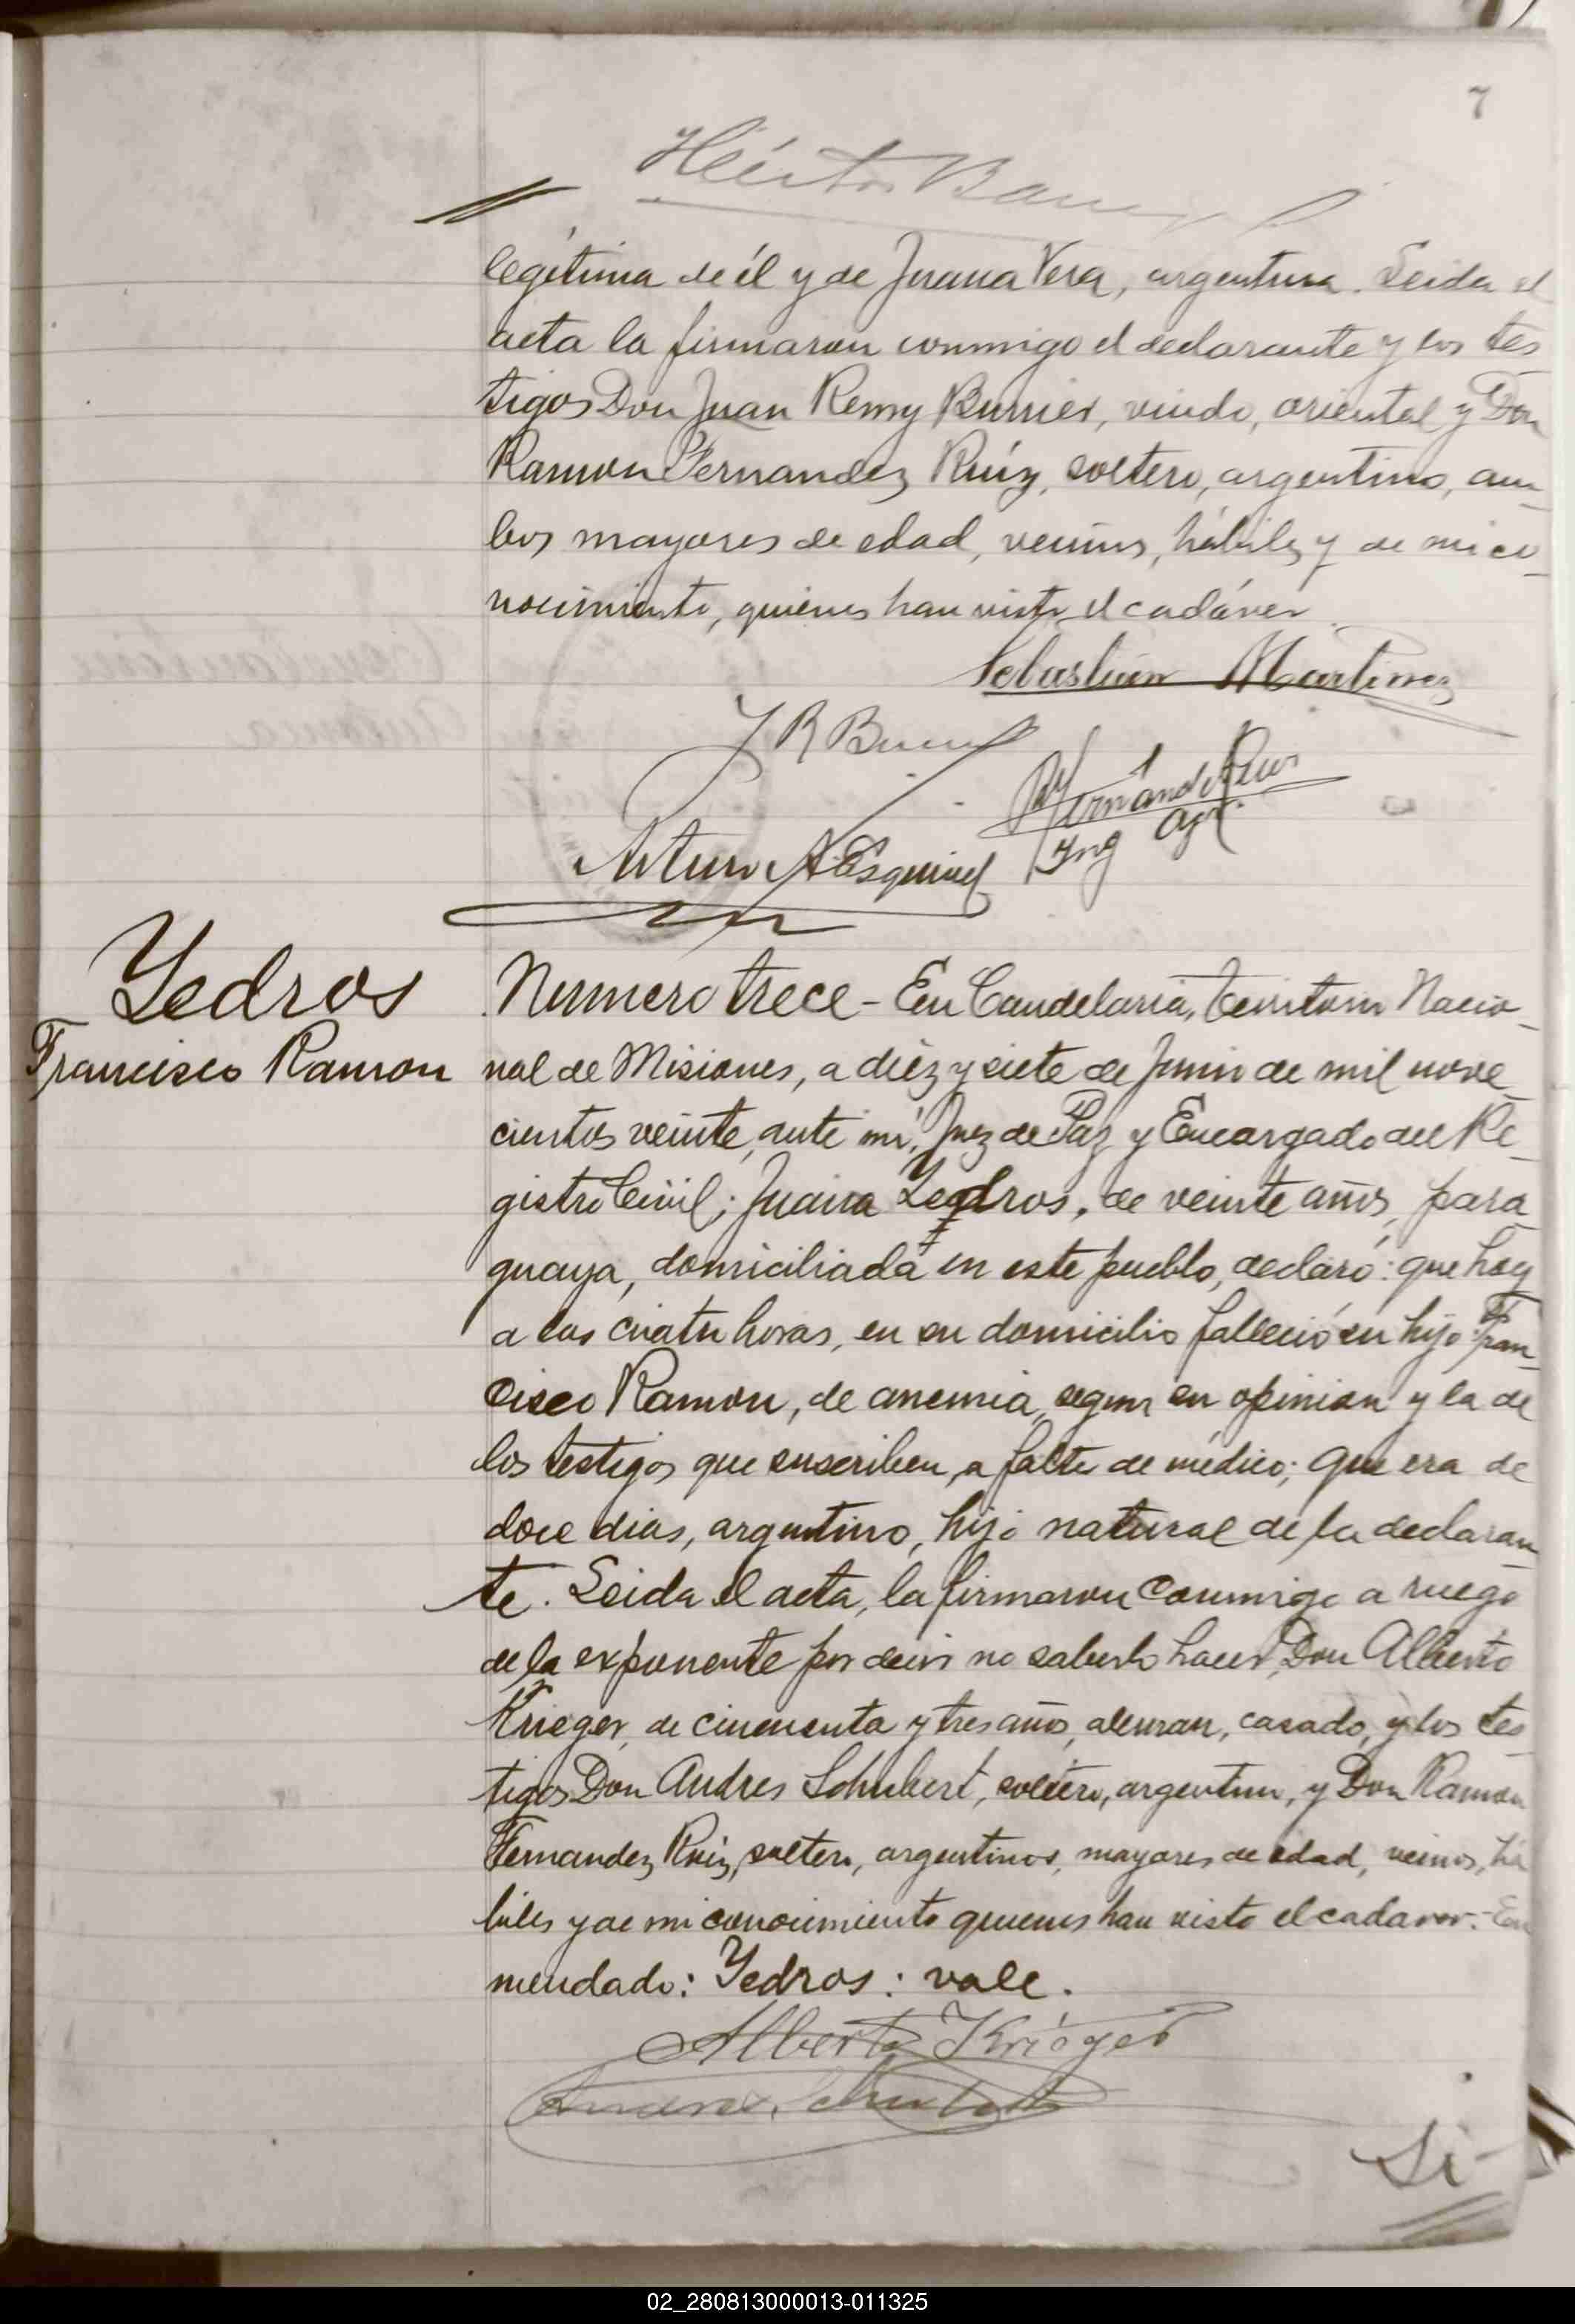 7
Héctor
legítima de él y de Juana Vera, argentina. Leida el
acta la firmaron conmigo el declarante y los tes
tigos Don Juan Remy Burnier, viudo, oriental y Don
Ramon Fernandez Ruíz, soltero, argentino, am-
bos mayores de edad, vecinos, hábiles y de mi co-
nocimiento, quienes han visto el cadáver.
Sebastian Martinez
J R
R Fernandez Ruiz
Ing Agr.
Arturo A Esquivel
Yedros
Francisco Ramon
Numero trece - En Candelaria, Territorio Nacio-
nal de Misiones, a diéz y siete de Junio de mil nove-
cientos veinte, ante mí, Juez de Paz y Encargado del Re-
gistro Civil; Juana Yedros, de veinte años, para-
guaya, domiciliada en este pueblo, declaró: que hoy
a las cuatro horas, en su domicilio falleció su hijo Fran-
cisco Ramon, de anemia, segun su opinion y la de
los testigos que suscriben, a falta de médico; que era de
doce dias, argentino, hijo natural de la declaran-
te. Leida el acta, la firmaron conmigo a ruego
de la exponente por decir no saberlo hacer, Don Alberto
Krieger, de cincuenta y tres años, aleman, casado, y los tes-
tigos Don Andres Schubert, soltero, argentino, y Don Ramon
Fernandez Ruiz, soltero, argentinos, mayores de edad, vecinos, há
biles y de mi conocimiento quienes han visto el cadaver.- En
mendado: Yedros: vale.
Alberto Krieger
Andres Schubert
Si-
02_280813000013-011325